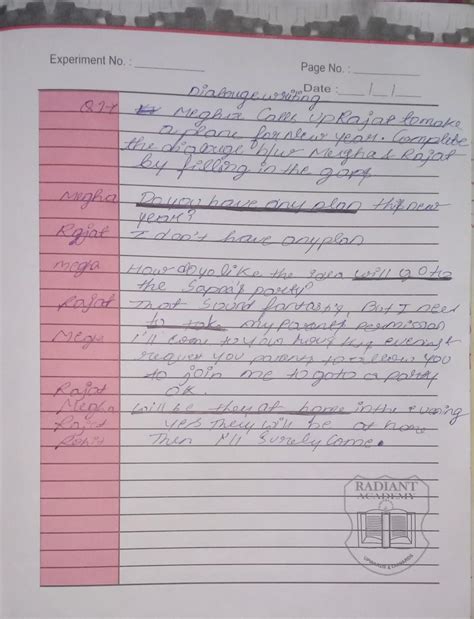 Experiment No. :
Page No. :
Date : / /
Dialougewriting
Q1+ Megha Calls up Rajat to make
a plane for new year. Complete
the dialouge b/w Megha & Rajat
by filling in the gaps
Megha Do you have any plan this new
year?
Rajat I don't have any plan
Megha How do you like the idea will go to
the Sapna's party?
Rajat That sound fantasy, But I need
to take my parents permission
Megha I'll come to your house this evening &
request you parents to allow you
to join me to go to a party
Rajat OK.
Megha will be they at home in the evening
Rajat yes they will be at home
Then I'll Surely Come.
RADIANT
ACADEMY